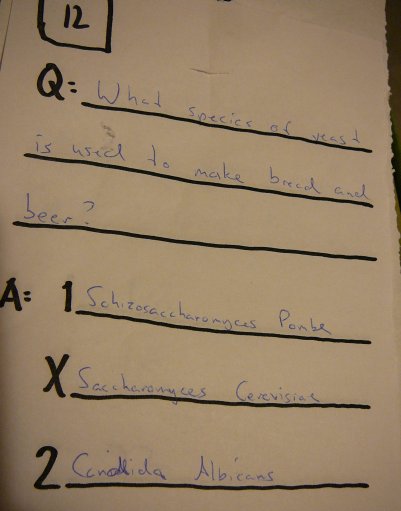 12
Q: What species of yeast
is used to make bread and
beer?
A: 1 Schizosaccharomyces Pombe
X Saccharomyces Cerevisiae
2 Candida Albicans